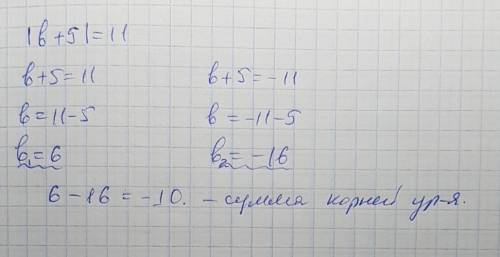 |b+5|=11
b+5=11 b+5=-11
b=11-5 b=-11-5
b₁=6 b₂=-16
6-16=-10. - сумма корней ур-я.